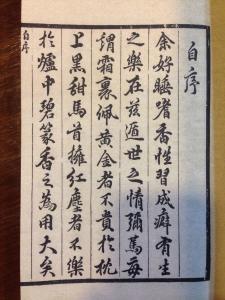 自序
余好睡嗜香性習成癖有生
之樂在茲遁世之情彌篤每
謂霜裹佩黃金者不貴於枕
上黑甜馬首擁紅塵者不樂
於爐中碧篆香之為用大矣
自序